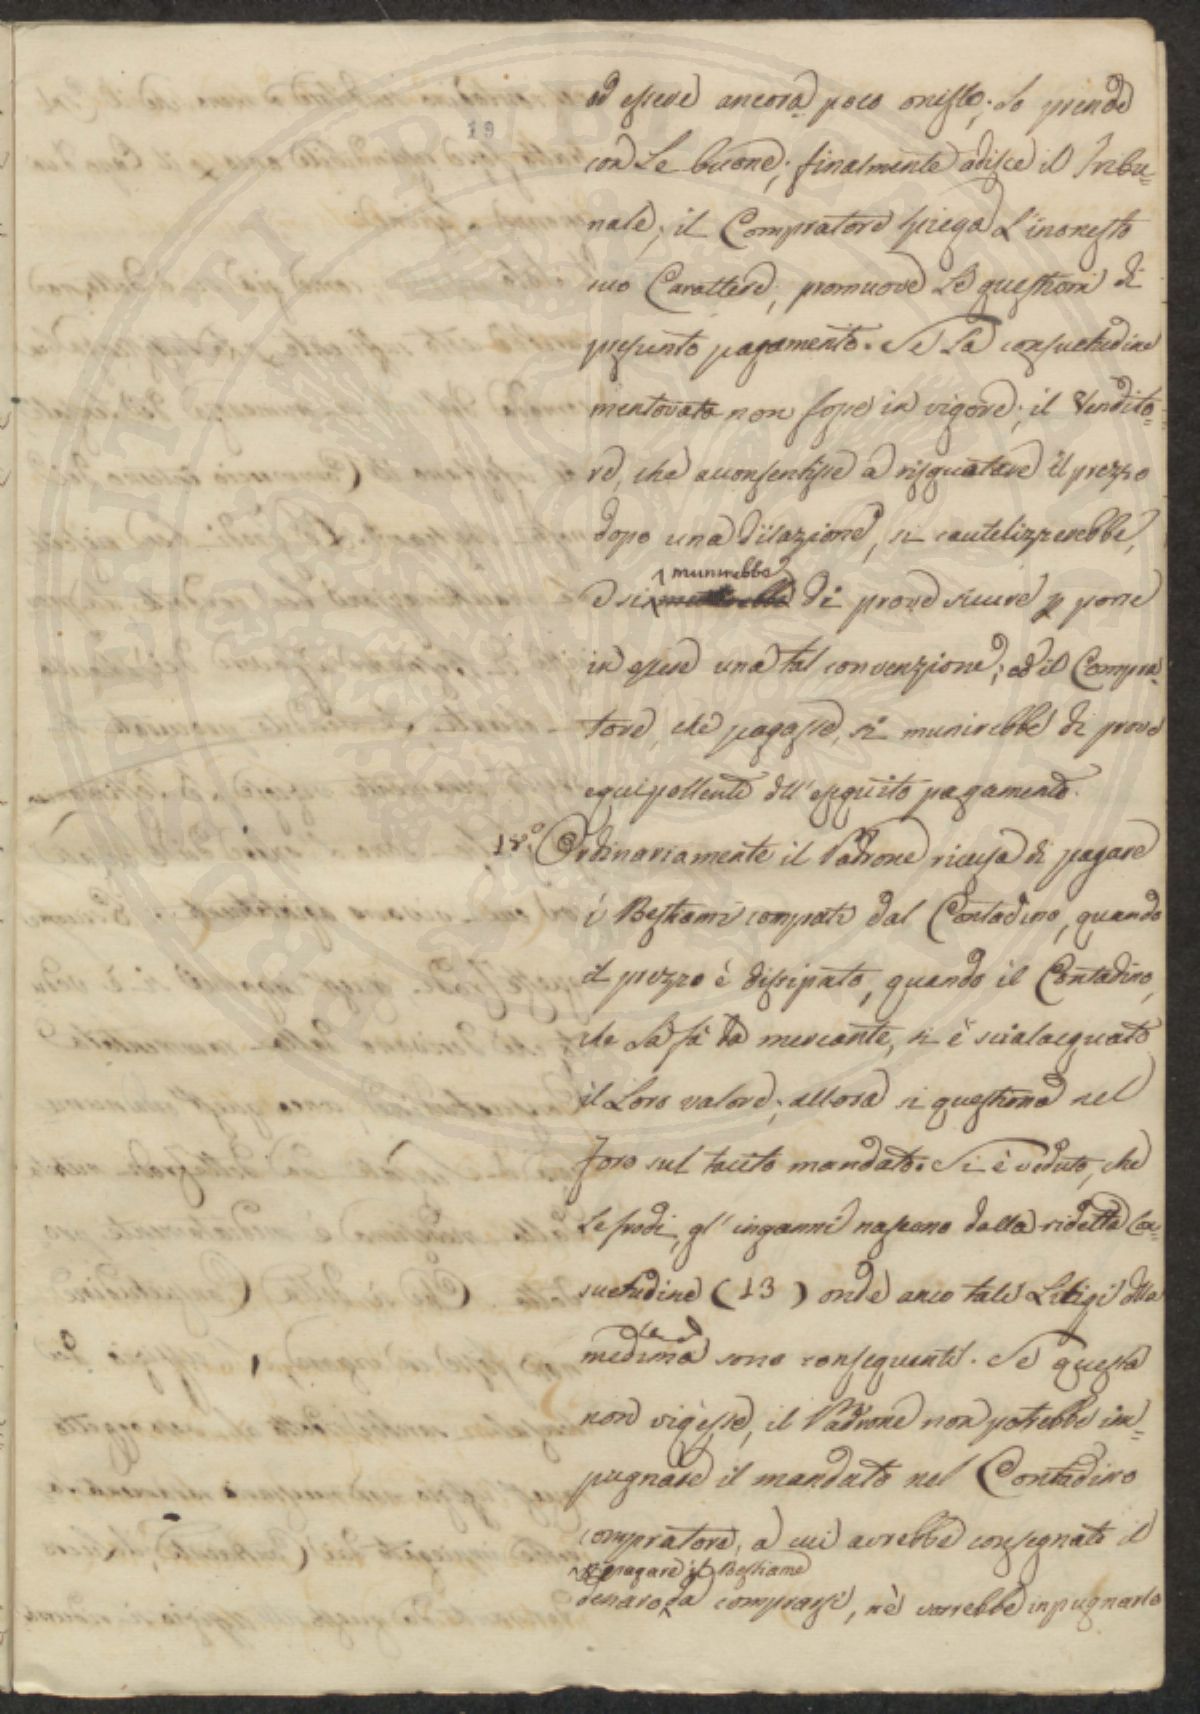 19
od essere ancora poco onesto, lo prende
con le buone, finalmente adisce il Tribu=
nale, il Compratore spiega l'inonesto
suo Carattere, promuove le questioni di
presunto pagamento. Se la consuetudine
mentovata non fosse in vigore, il Vendito=
re, che acconsentisse a risquotere il prezzo
dopo una dilazione, si cautelizzerebbe,
munirebbe
e si di prove sicure p porre
in essere una tal convenzione, ed il Compra=
tore, che pagasse, si munirebbe di prove
equipollenti dell'eseguito pagamento.
18.° Ordinariamente il Padrone ricusa di pagare
i Bestiami comprati dal Contadino, quando
il prezzo è dissipato, quando il Contadino,
che la fà da mercante, si è scialacquato
il loro valore, allora si questiona nel
Foro sul tacito mandato. Si è veduto, che
le frodi, gl'inganni nascono dalla ridetta Con=
suetudine (13) onde anco tali Litigi dlla
medma sono conseguenti. Se questa
non vigesse, il Padrone non potrebbe im=
pugnare il mandato nel Contadino
compratore, a cui avrebbe consegnato il
p pagare il Bestiame
denaro da comprarsi, nè vorrebbe inpugnarlo